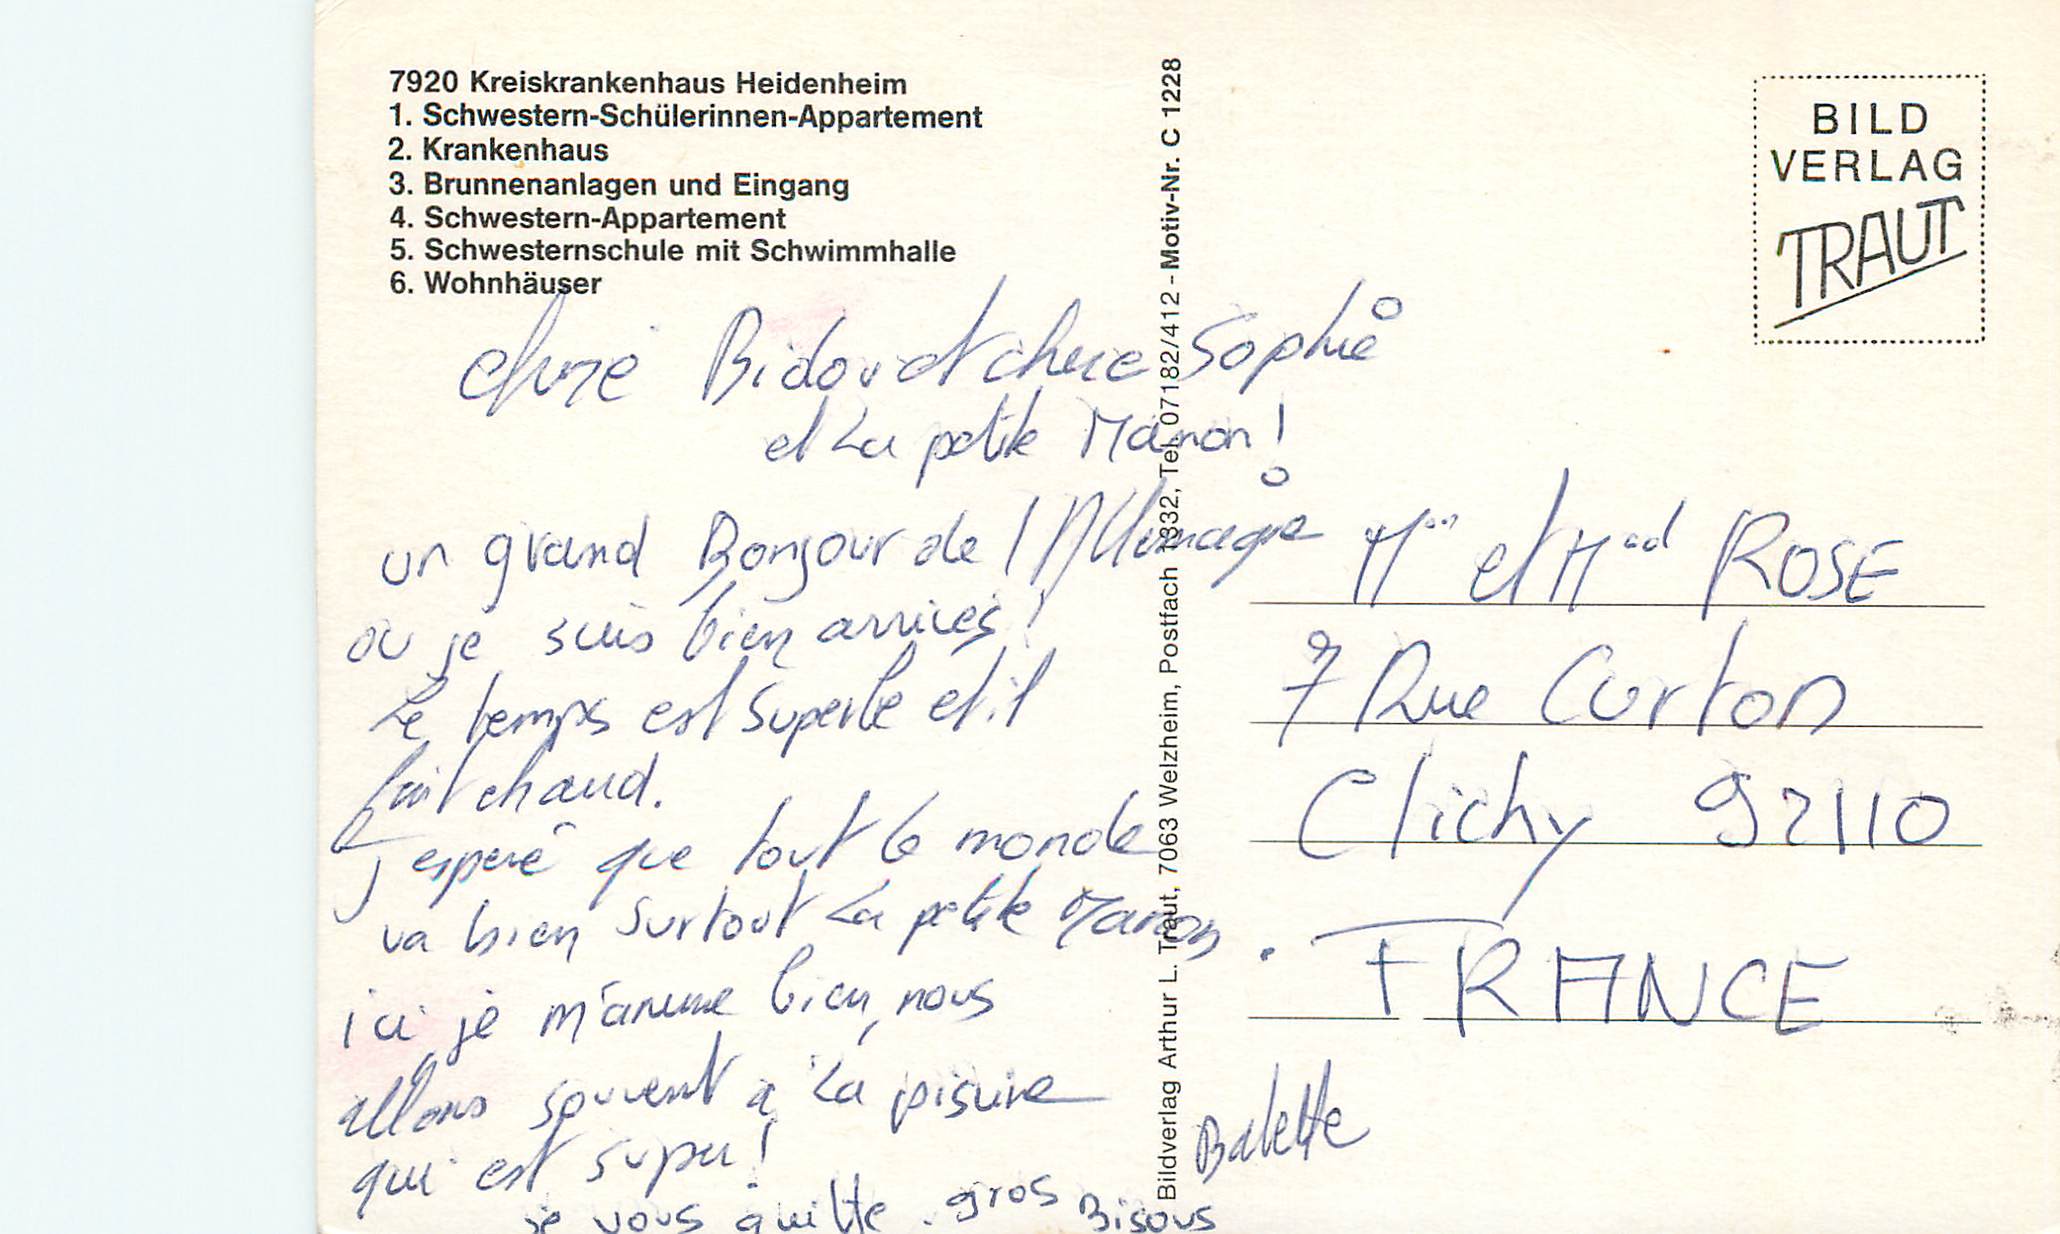 7920 Kreiskrankenhaus Heidenheim
1. Schwestern-Schülerinnen-Appartement
2. Krankenhaus
3. Brunnenanlagen und Eingang
4. Schwestern-Appartement
5. Schwesternschule mit Schwimmhalle
6. Wohnhäuser
Bidou et chere Sophie
et La petite Manon !
un grand Bonjour de l'Allemagne
où je suis bien arrivés !
Le temps est superbe et il
fait chaud.
J'espere que tout le monde
va bien surtout La petite Manon.
ici je m'amuse bien, nous
allons souvent a La piscine
qui est super !
je vous quitte. gros Bisous
Babette
Bildverlag Arthur L. Traut, 7063 Welzheim, Postfach 1332, Tel. 07182/412 - Motiv-Nr. C 1228
BILD
VERLAG
TRAUT
et ROSE
7 Rue Curton
Clichy 92110
FRANCE